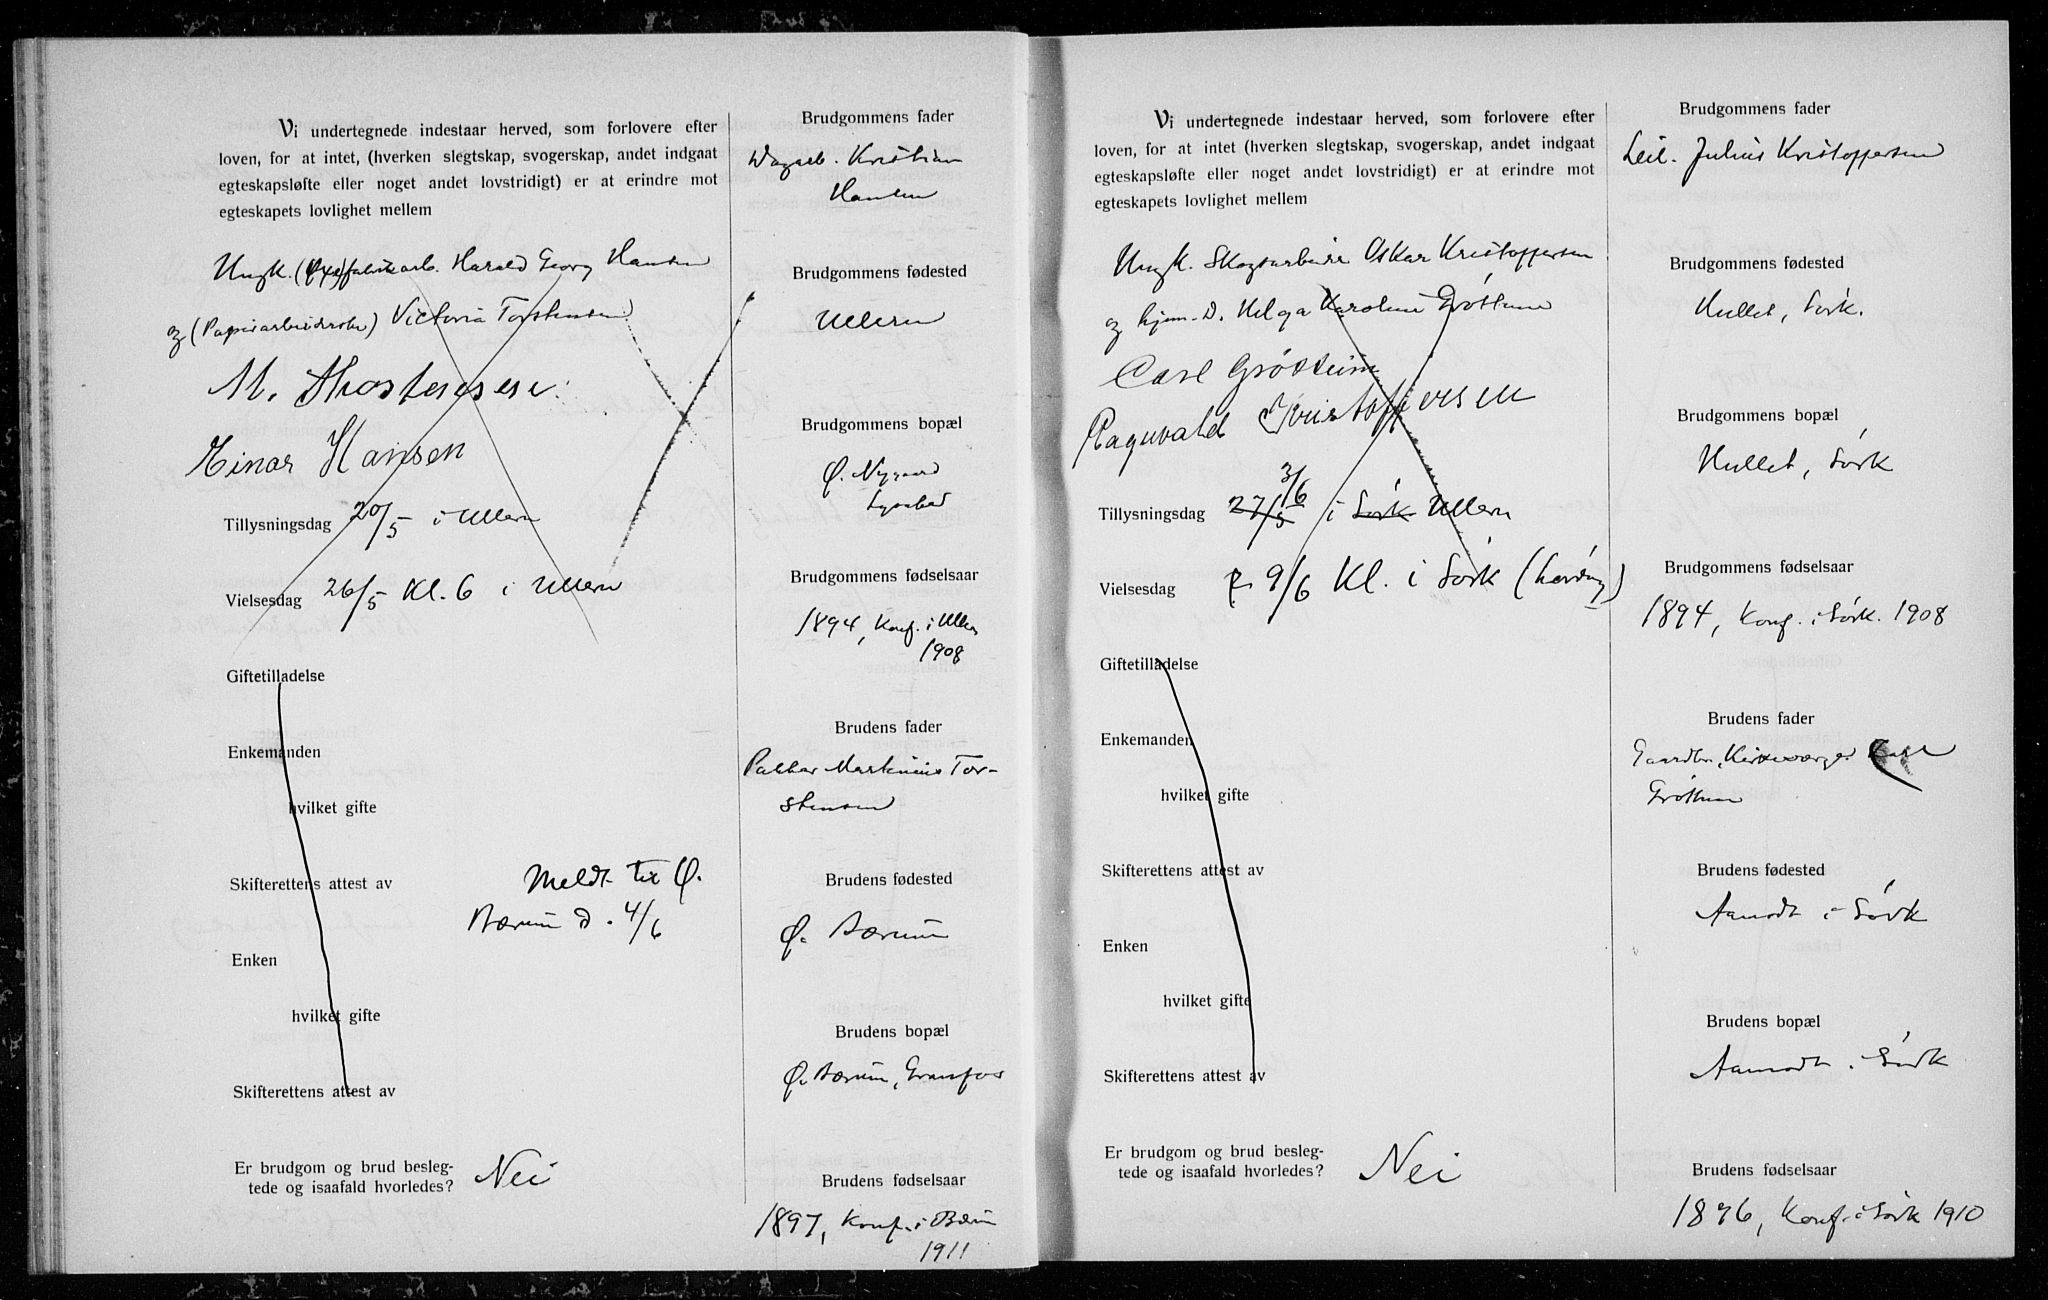 Vi undertegnede indestaar herved, som forlovere efter
loven, for at intet, (hverken slegtskap, svogerskap, andet indgaat
egteskapsløfte eller noget andet lovstridigt) er at erindre mot
egteskapets lovlighet mellem
Ungk. fabrikarb. Harald Georg Hansen
og (Papirarbeiderske) Victoria Torstensen
M. Thorstensen.
Einar Hansen
Tillysningsdag 20/5 i Ullern
Vielsesdag 26/5 Kl. 6 i Ullern
Giftetilladelse
Enkemanden
hvilket gifte
Skifterettens attest av
Meldt til Ø.
Bærum d. 4/6
Enken
hvilket gifte
Skifterettens attest av
Er brudgom og brud besleg-
tede og isaafald hvorledes? Nei
Brudgommens fader
Kristian
Hansen
Brudgommens fødested
Ullern
Brudgommens bopæl
Ø. Nygaard
Lysaker
Brudgommens fødselsaar
1894, Konf. i Ullern
1908
Brudens fader
Pakker Martinius Tor-
stensen
Brudens fødested
Ø. Bærum
Brudens bopæl
Ø. Bærum, Granfos
Brudens fødselsaar
1897, Konf. i Bærum
1911
Vi undertegnede indestaar herved, som forlovere efter
loven, for at intet, (hverken slegtskap, svogerskap, andet indgaat
egteskapsløfte eller noget andet lovstridigt) er at erindre mot
egteskapets lovlighet mellem
Ungk. Skogsarbeider Oskar Kristoffersen
og hjem. D. Helga Karoline Gröttum
Carl Grøttum
Ragnvald Kristoffersen
3/6
Tillysningsdag 27/5 i Sörk Ullern
Vielsesdag 9/6 Kl. i Sörk (Lørdag)
Giftetilladelse
Enkemanden
hvilket gifte
Skifterettens attest av
Enken
hvilket gifte
Skifterettens attest av
Er brudgom og brud besleg-
tede og isaafald hvorledes? Nei
Brudgommens fader
Leil. Julius Kristoffersen
Brudgommens fødested
Hullet, Sörk.
Brudgommens bopæl
Hullet, Sörk
Brudgommens fødselsaar
1894, Konf. i Sörk. 1908
Brudens fader
Gaardbr. Kirkeværge Karl
Gröttum
Brudens fødested
Aamodt i Sörk
Brudens bopæl
Aamodt i Sörk
Brudens fødselsaar
1896, Konf. i Sörk 1910